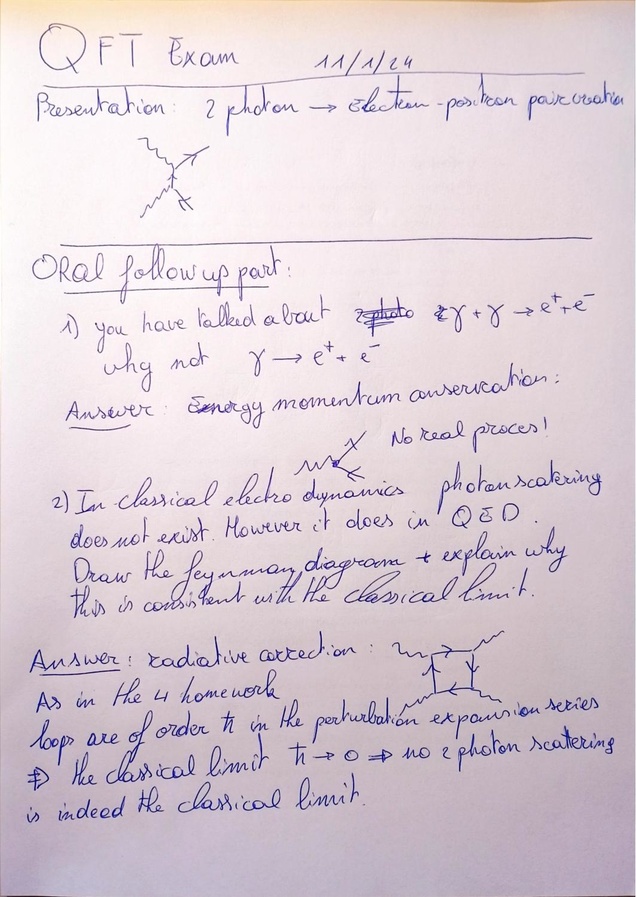 QFT Exam 11/1/24
Presentation: 2 photon → electron-positron pair creation
Oral follow up part:
1) you have talked about γ + γ → e⁺ + e⁻
why not γ → e⁺ + e⁻
Answer: Energy momentum conservation:
No real proces!
2) In classical electro dynamics photon scatering
does not exist. However it does in QED.
Draw the feynman diagram + explain why
this is consistent with the classical limit.
Answer: radiative correction:
As in the 4 homework
loops are of order ħ in the perturbation expansion series
⇒ the classical limit ħ → 0 ⇒ no 2 photon scattering
is indeed the classical limit.